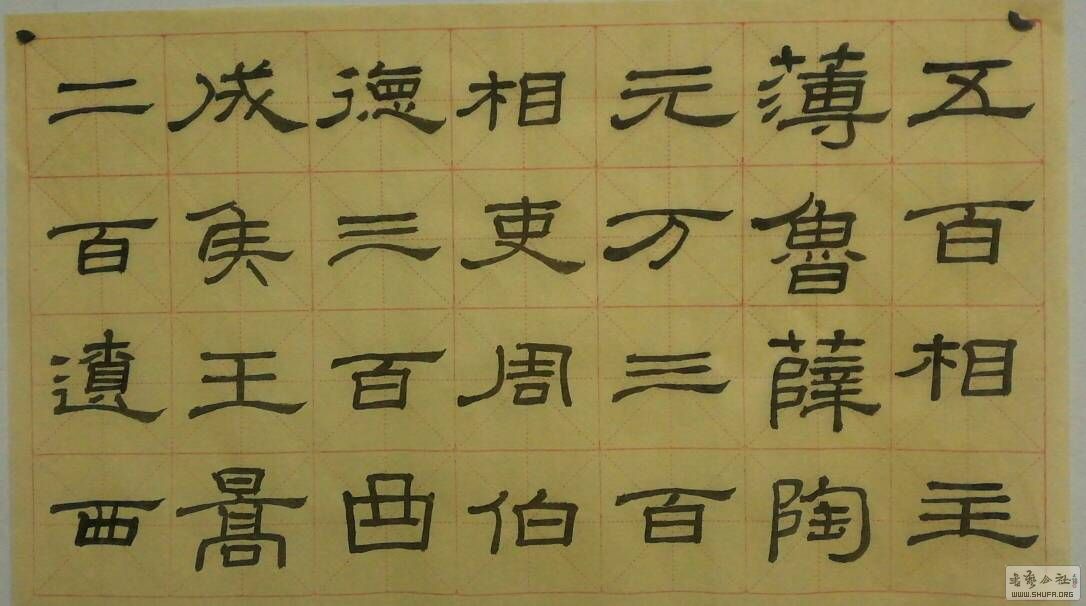 五百相主
薄魯薛陶
元万三百
相吏周伯
德三百曲
成侯王暠
二百遺西
书艺公社
WWW.SHUFA.ORG